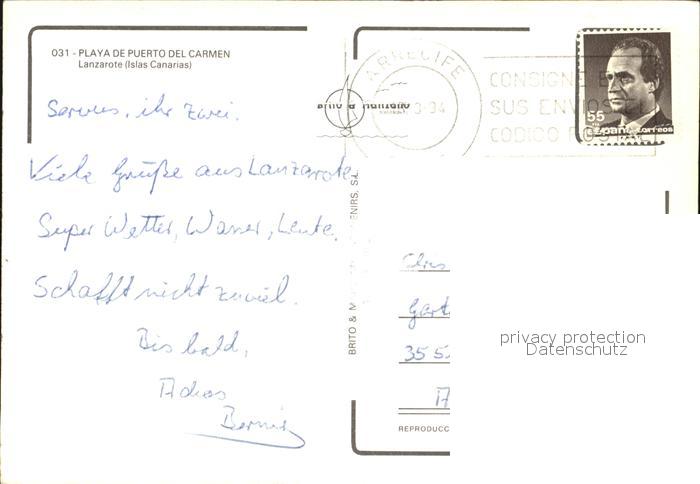 031 - PLAYA DE PUERTO DEL CARMEN
Lanzarote (Islas Canarias)
Servus, ihr zwei.
Viele Grüße aus Lanzarote.
Super Wetter, Wasser, Leute.
Schafft nicht zuviel.
Bis bald,
Adios
ARRECIFE
3-94
CONSIGNE E
SUS ENVIOS EL
CODIGO POSTAL
55
España CORREOS
BRITO & M
ENIRS, S.L.
Gart
35 5
A
REPRODUCC
privacy protection
Datenschutz